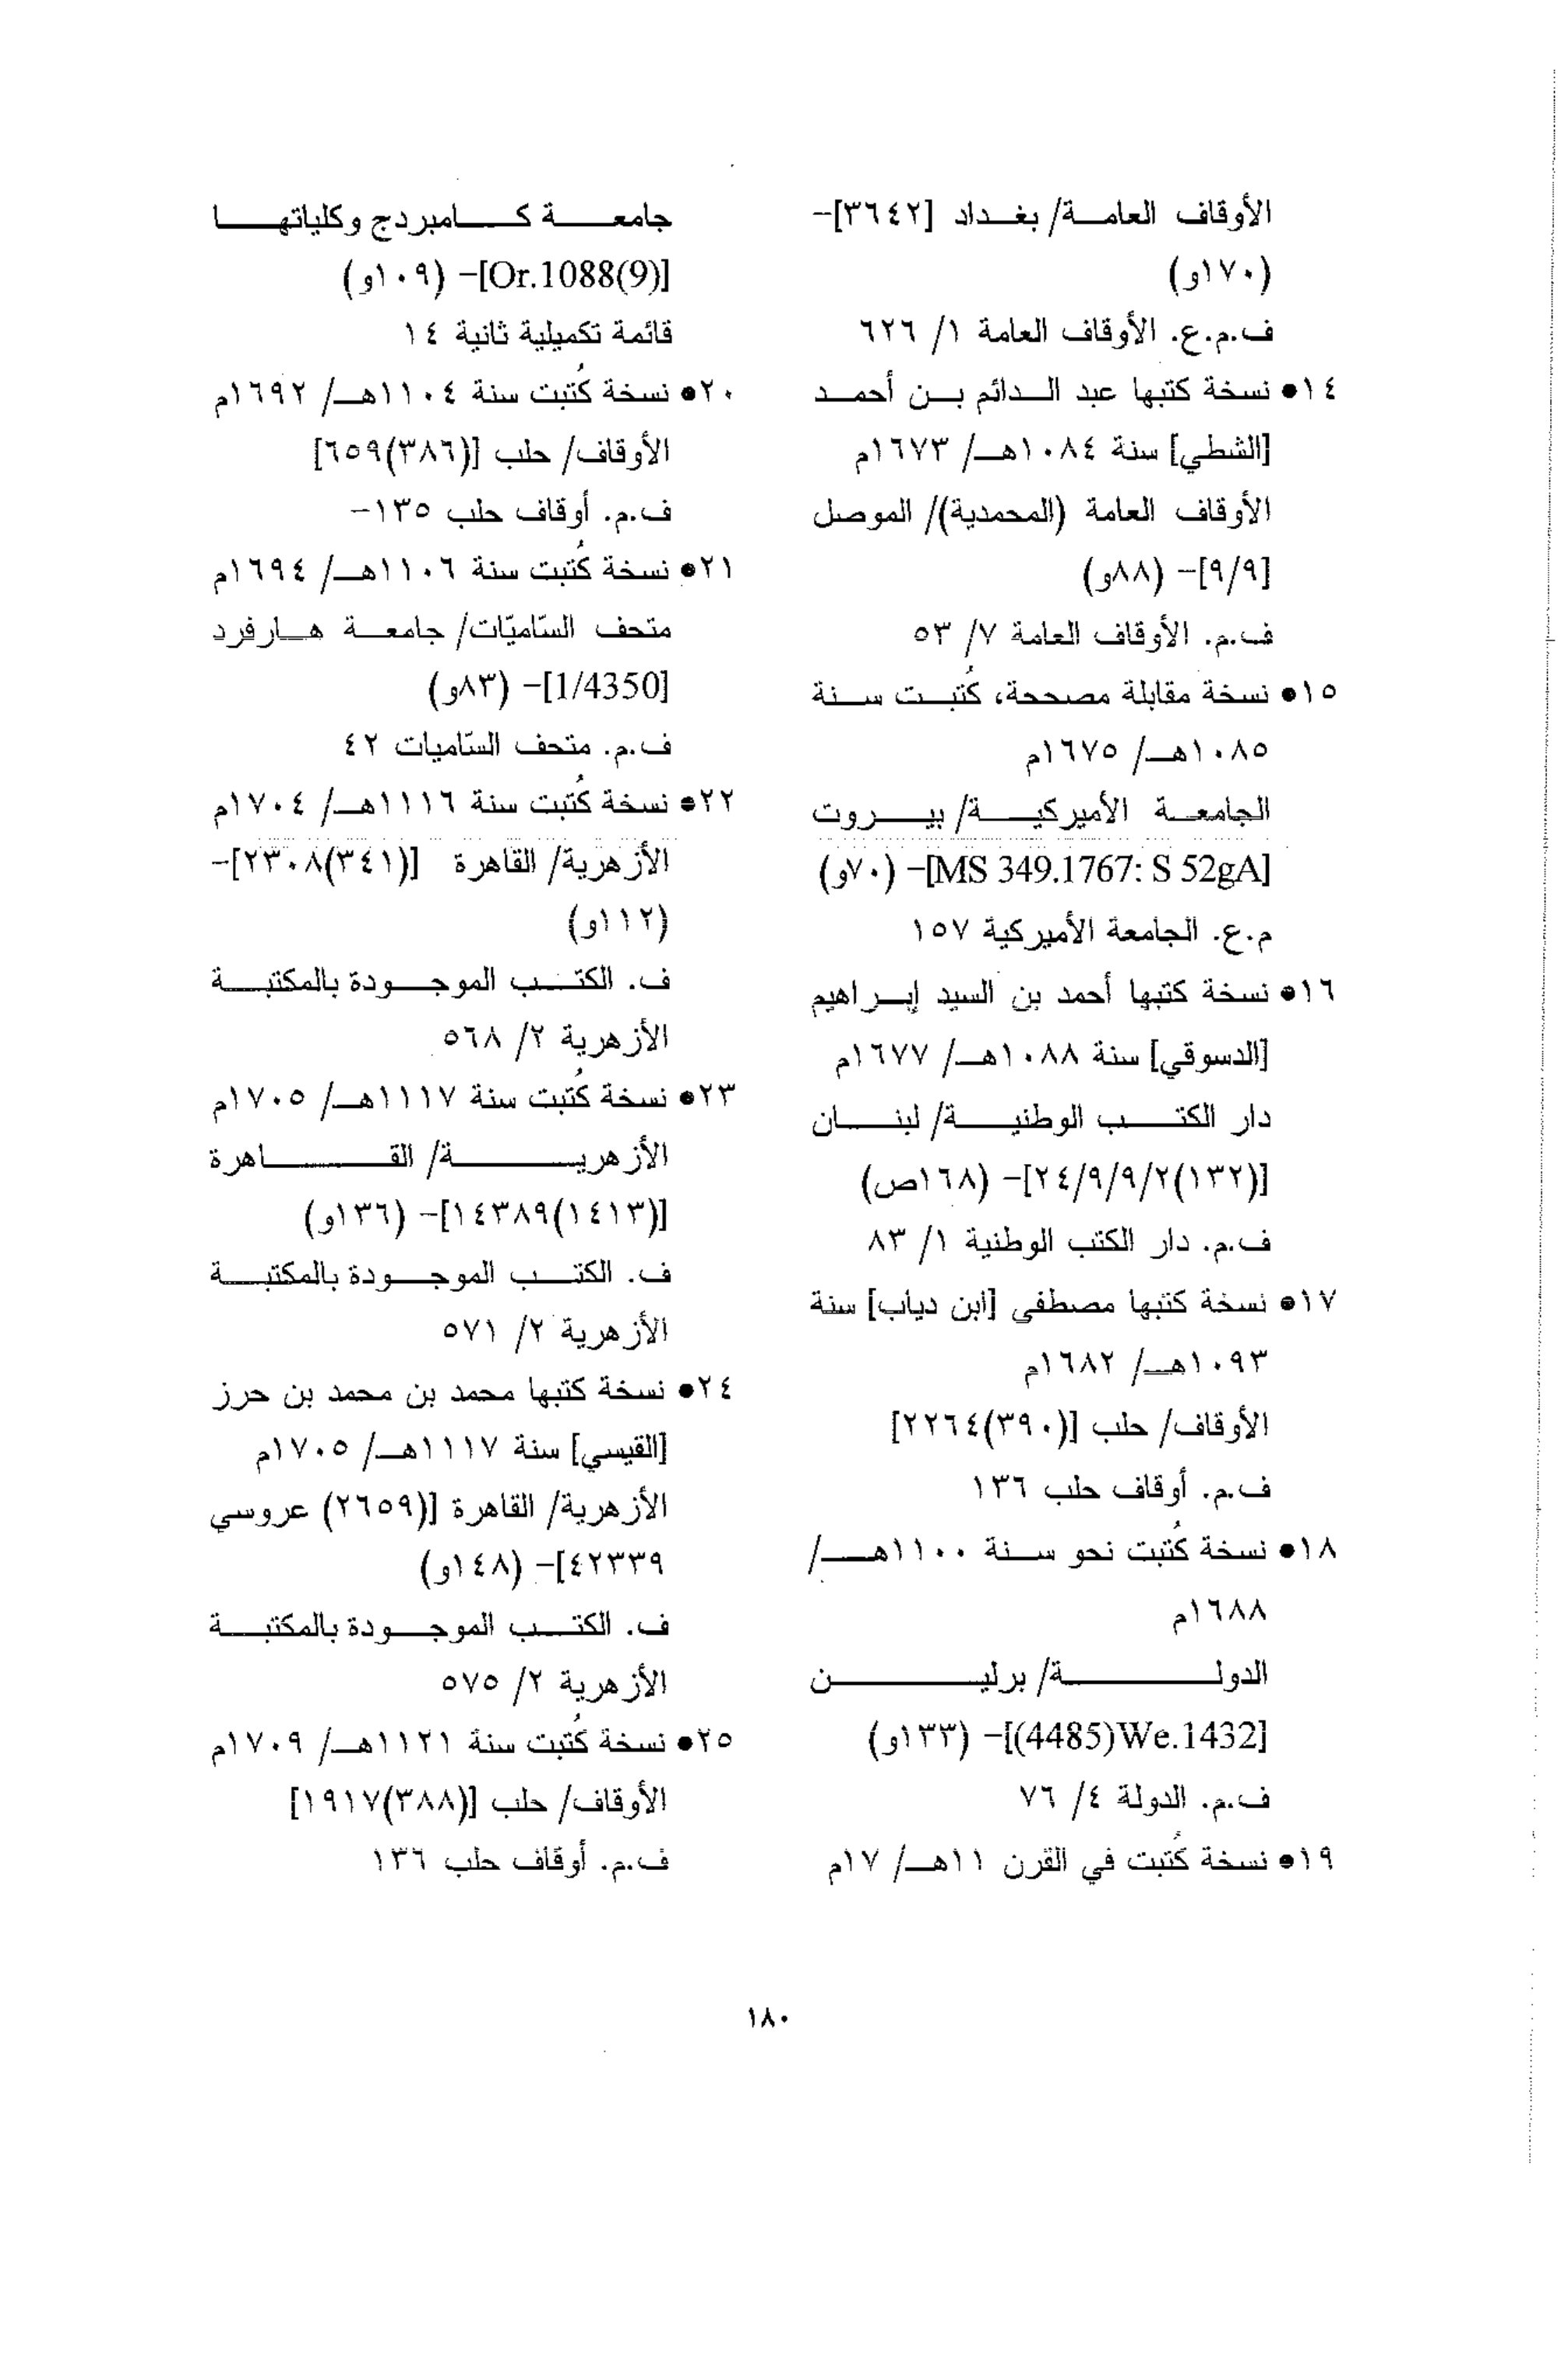 الأوقاف العامة/ بغداد [٣٦٤٢]-
(١٧٠و)
ف.م.ع. الأوقاف العامة ١/ ٦٢٦
١٤• نسخة كتبها عبد الدائم بن أحمد
[الشطي] سنة ١٠٨٤هـ/ ١٦٧٣م
الأوقاف العامة (المحمدية)/ الموصل
[٩/٩]- (٨٨و)
ف.م. الأوقاف العامة ٧/ ٥٣
١٥• نسخة مقابلة مصححة، كُتبت سنة
١٠٨٥هـ/ ١٦٧٥م
الجامعة الأميركية/ بيروت
[MS 349.1767: S 52gA]- (٧٠و)
م.ع. الجامعة الأميركية ١٥٧
١٦• نسخة كتبها أحمد بن السيد إبراهيم
[الدسوقي] سنة ١٠٨٨هـ/ ١٦٧٧م
دار الكتب الوطنية/ لبنان
[(١٣٢)٢٤/٩/٩/٢]- (١٦٨ص)
ف.م. دار الكتب الوطنية ١/ ٨٣
١٧• نسخة كتبها مصطفى [ابن دياب] سنة
١٠٩٣هـ/ ١٦٨٢م
الأوقاف/ حلب [(٣٩٠)٢٢٦٤]
ف.م. أوقاف حلب ١٣٦
١٨• نسخة كُتبت نحو سنة ١١٠٠هـ/
١٦٨٨م
الدولة/ برلين
[(4485)We.1432]- (١٣٣و)
ف.م. الدولة ٤/ ٧٦
١٩• نسخة كُتبت في القرن ١١هـ/ ١٧م
جامعة كامبردج وكلياتها
[Or.1088(9)]- (١٠٩و)
قائمة تكميلية ثانية ١٤
٢٠• نسخة كُتبت سنة ١١٠٤هـ/ ١٦٩٢م
الأوقاف/ حلب [(٣٨٦)٦٥٩]
ف.م. أوقاف حلب ١٣٥-
٢١• نسخة كُتبت سنة ١١٠٦هـ/ ١٦٩٤م
متحف السّاميّات/ جامعة هارفرد
[1/4350]- (٨٣و)
ف.م. متحف السّاميات ٤٢
٢٢• نسخة كُتبت سنة ١١١٦هـ/ ١٧٠٤م
الأزهرية/ القاهرة [(٣٤١)٢٣٠٨]-
(١١٢و)
ف. الكتب الموجودة بالمكتبة
الأزهرية ٢/ ٥٦٨
٢٣• نسخة كُتبت سنة ١١١٧هـ/ ١٧٠٥م
الأزهرية/ القاهرة
[(١٤١٣)١٤٣٨٩]- (١٣٦و)
ف. الكتب الموجودة بالمكتبة
الأزهرية ٢/ ٥٧١
٢٤• نسخة كتبها محمد بن محمد بن حرز
[القيسي] سنة ١١١٧هـ/ ١٧٠٥م
الأزهرية/ القاهرة [(٢٦٥٩) عروسي
٤٢٣٣٩]- (١٤٨و)
ف. الكتب الموجودة بالمكتبة
الأزهرية ٢/ ٥٧٥
٢٥• نسخة كُتبت سنة ١١٢١هـ/ ١٧٠٩م
الأوقاف/ حلب [(٣٨٨)١٩١٧]
ف.م. أوقاف حلب ١٣٦
١٨٠